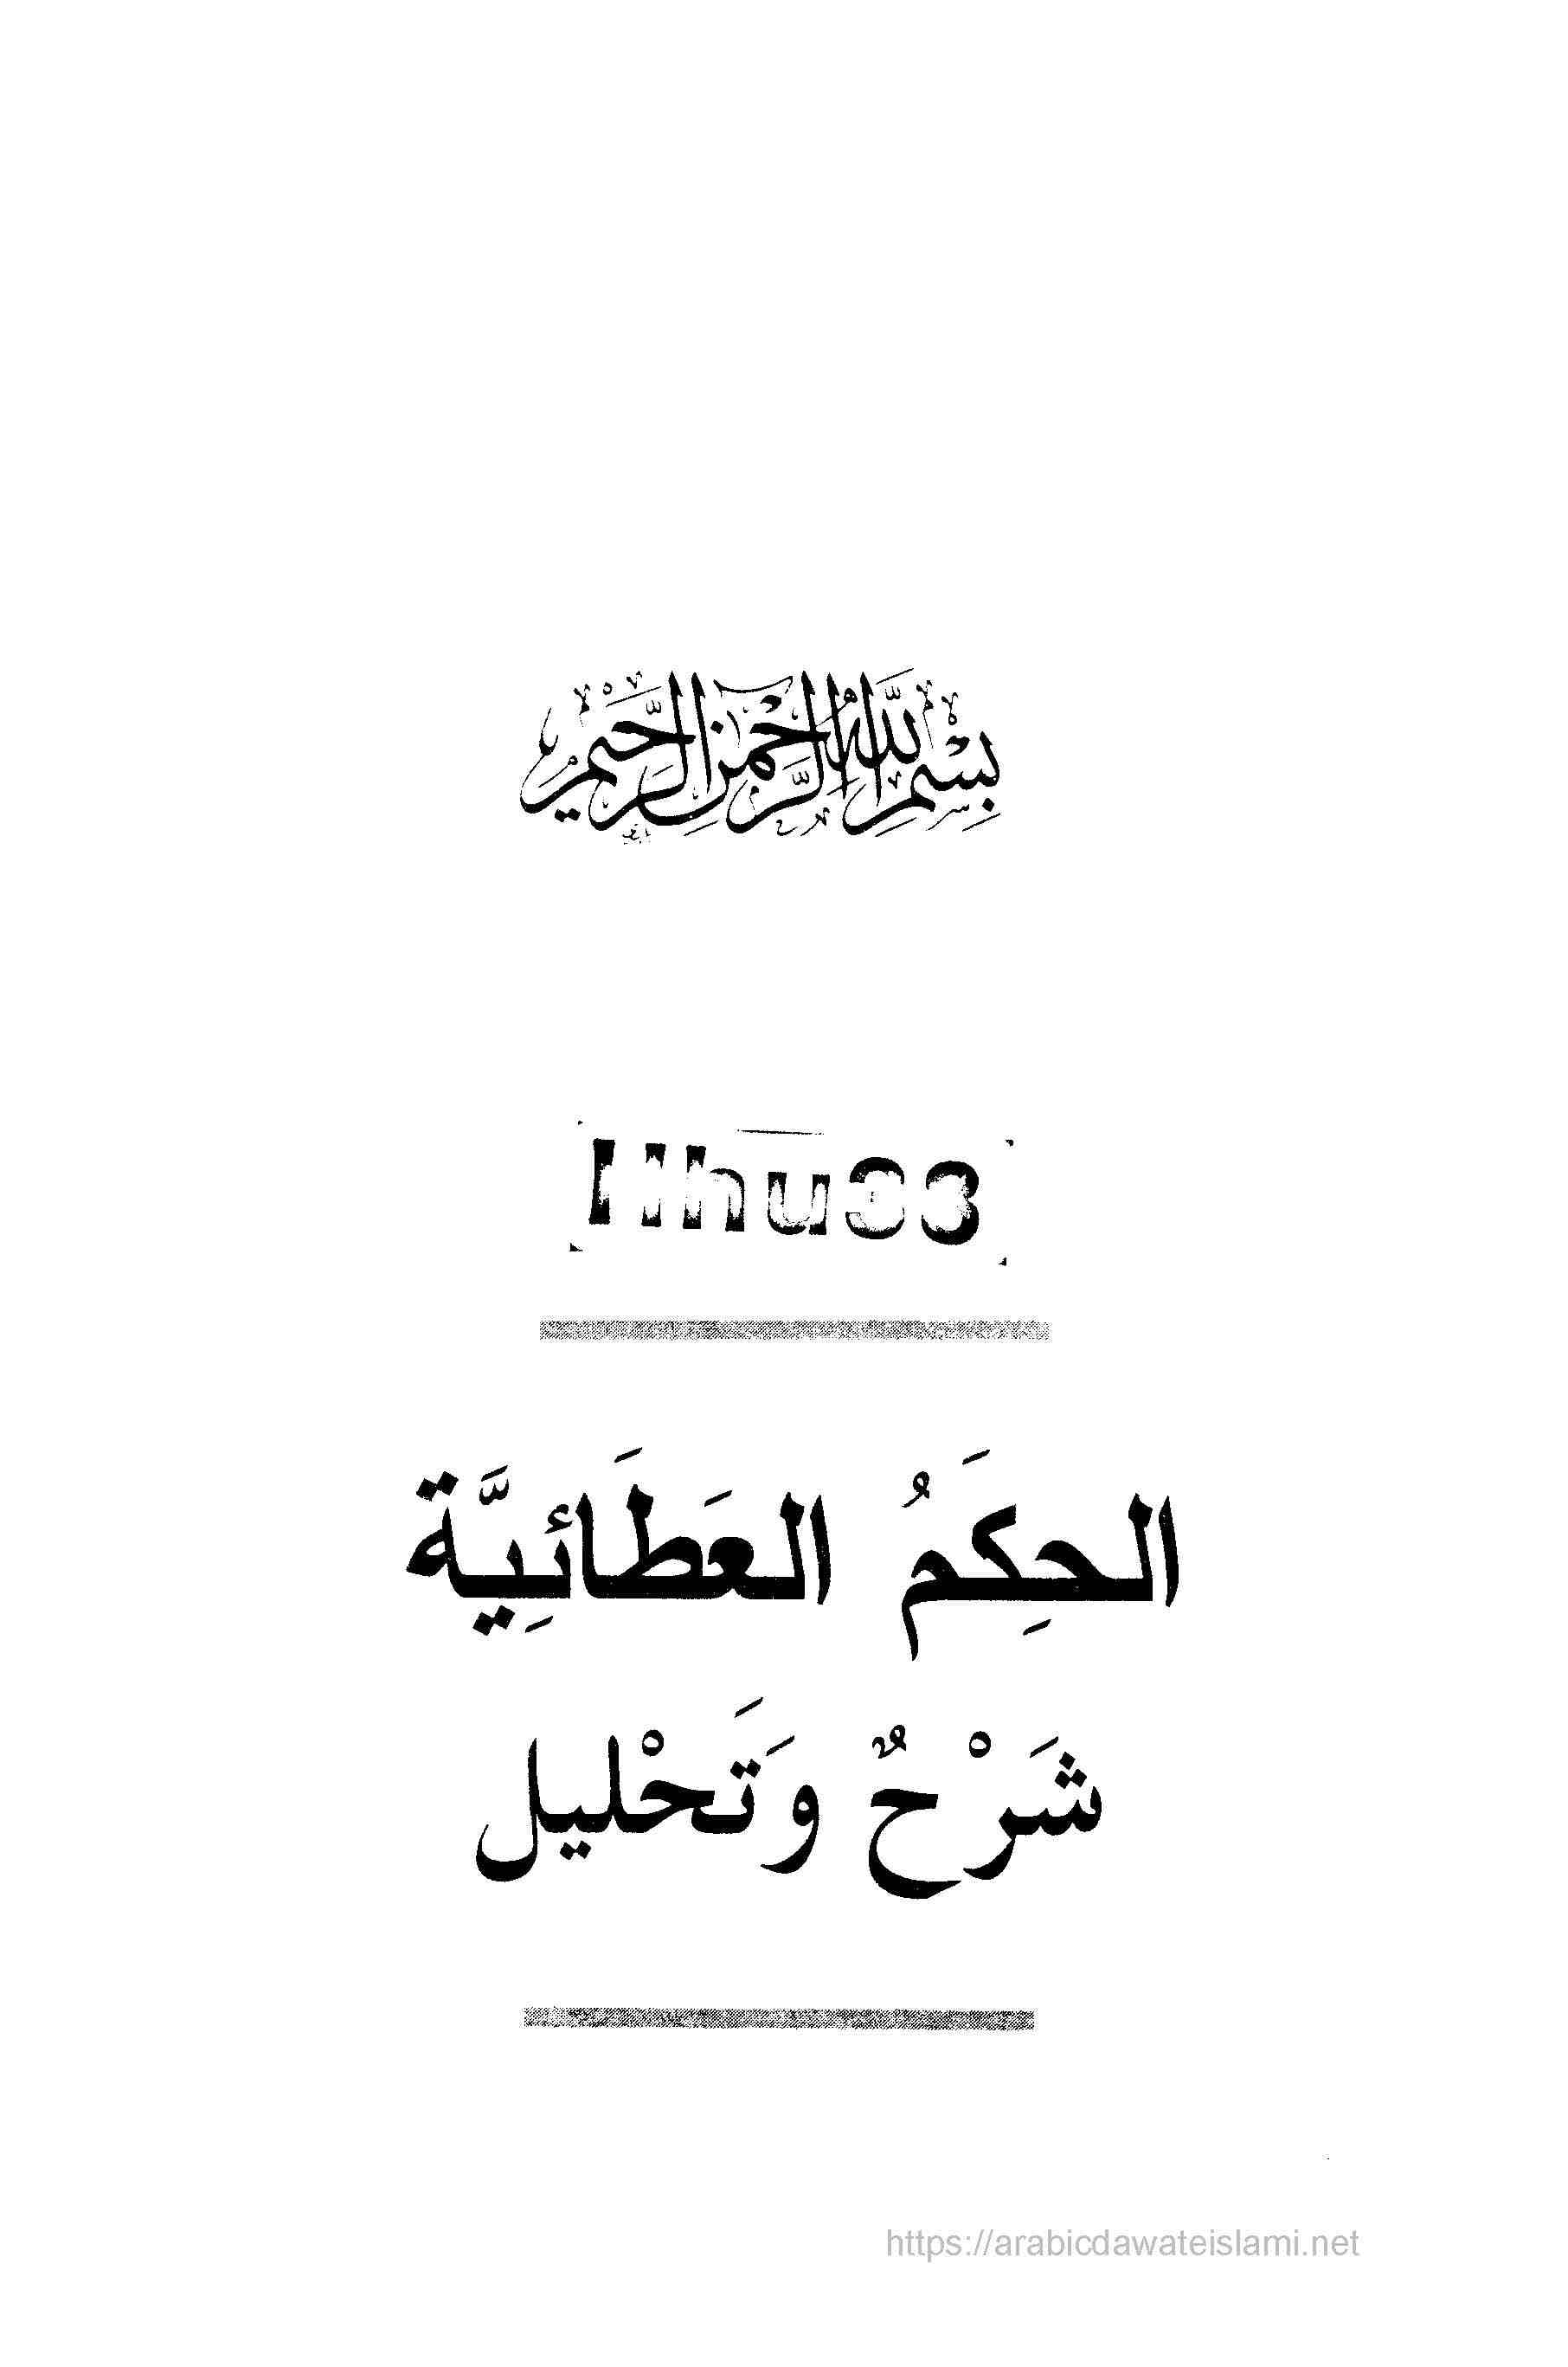 بِسْمِ اللَّهِ الرَّحْمَنِ الرَّحِيمِ
الحِكَمُ العَطَائِيَّة
شَرْحٌ وَتَحْلِيل
https://arabicdawateislami.net